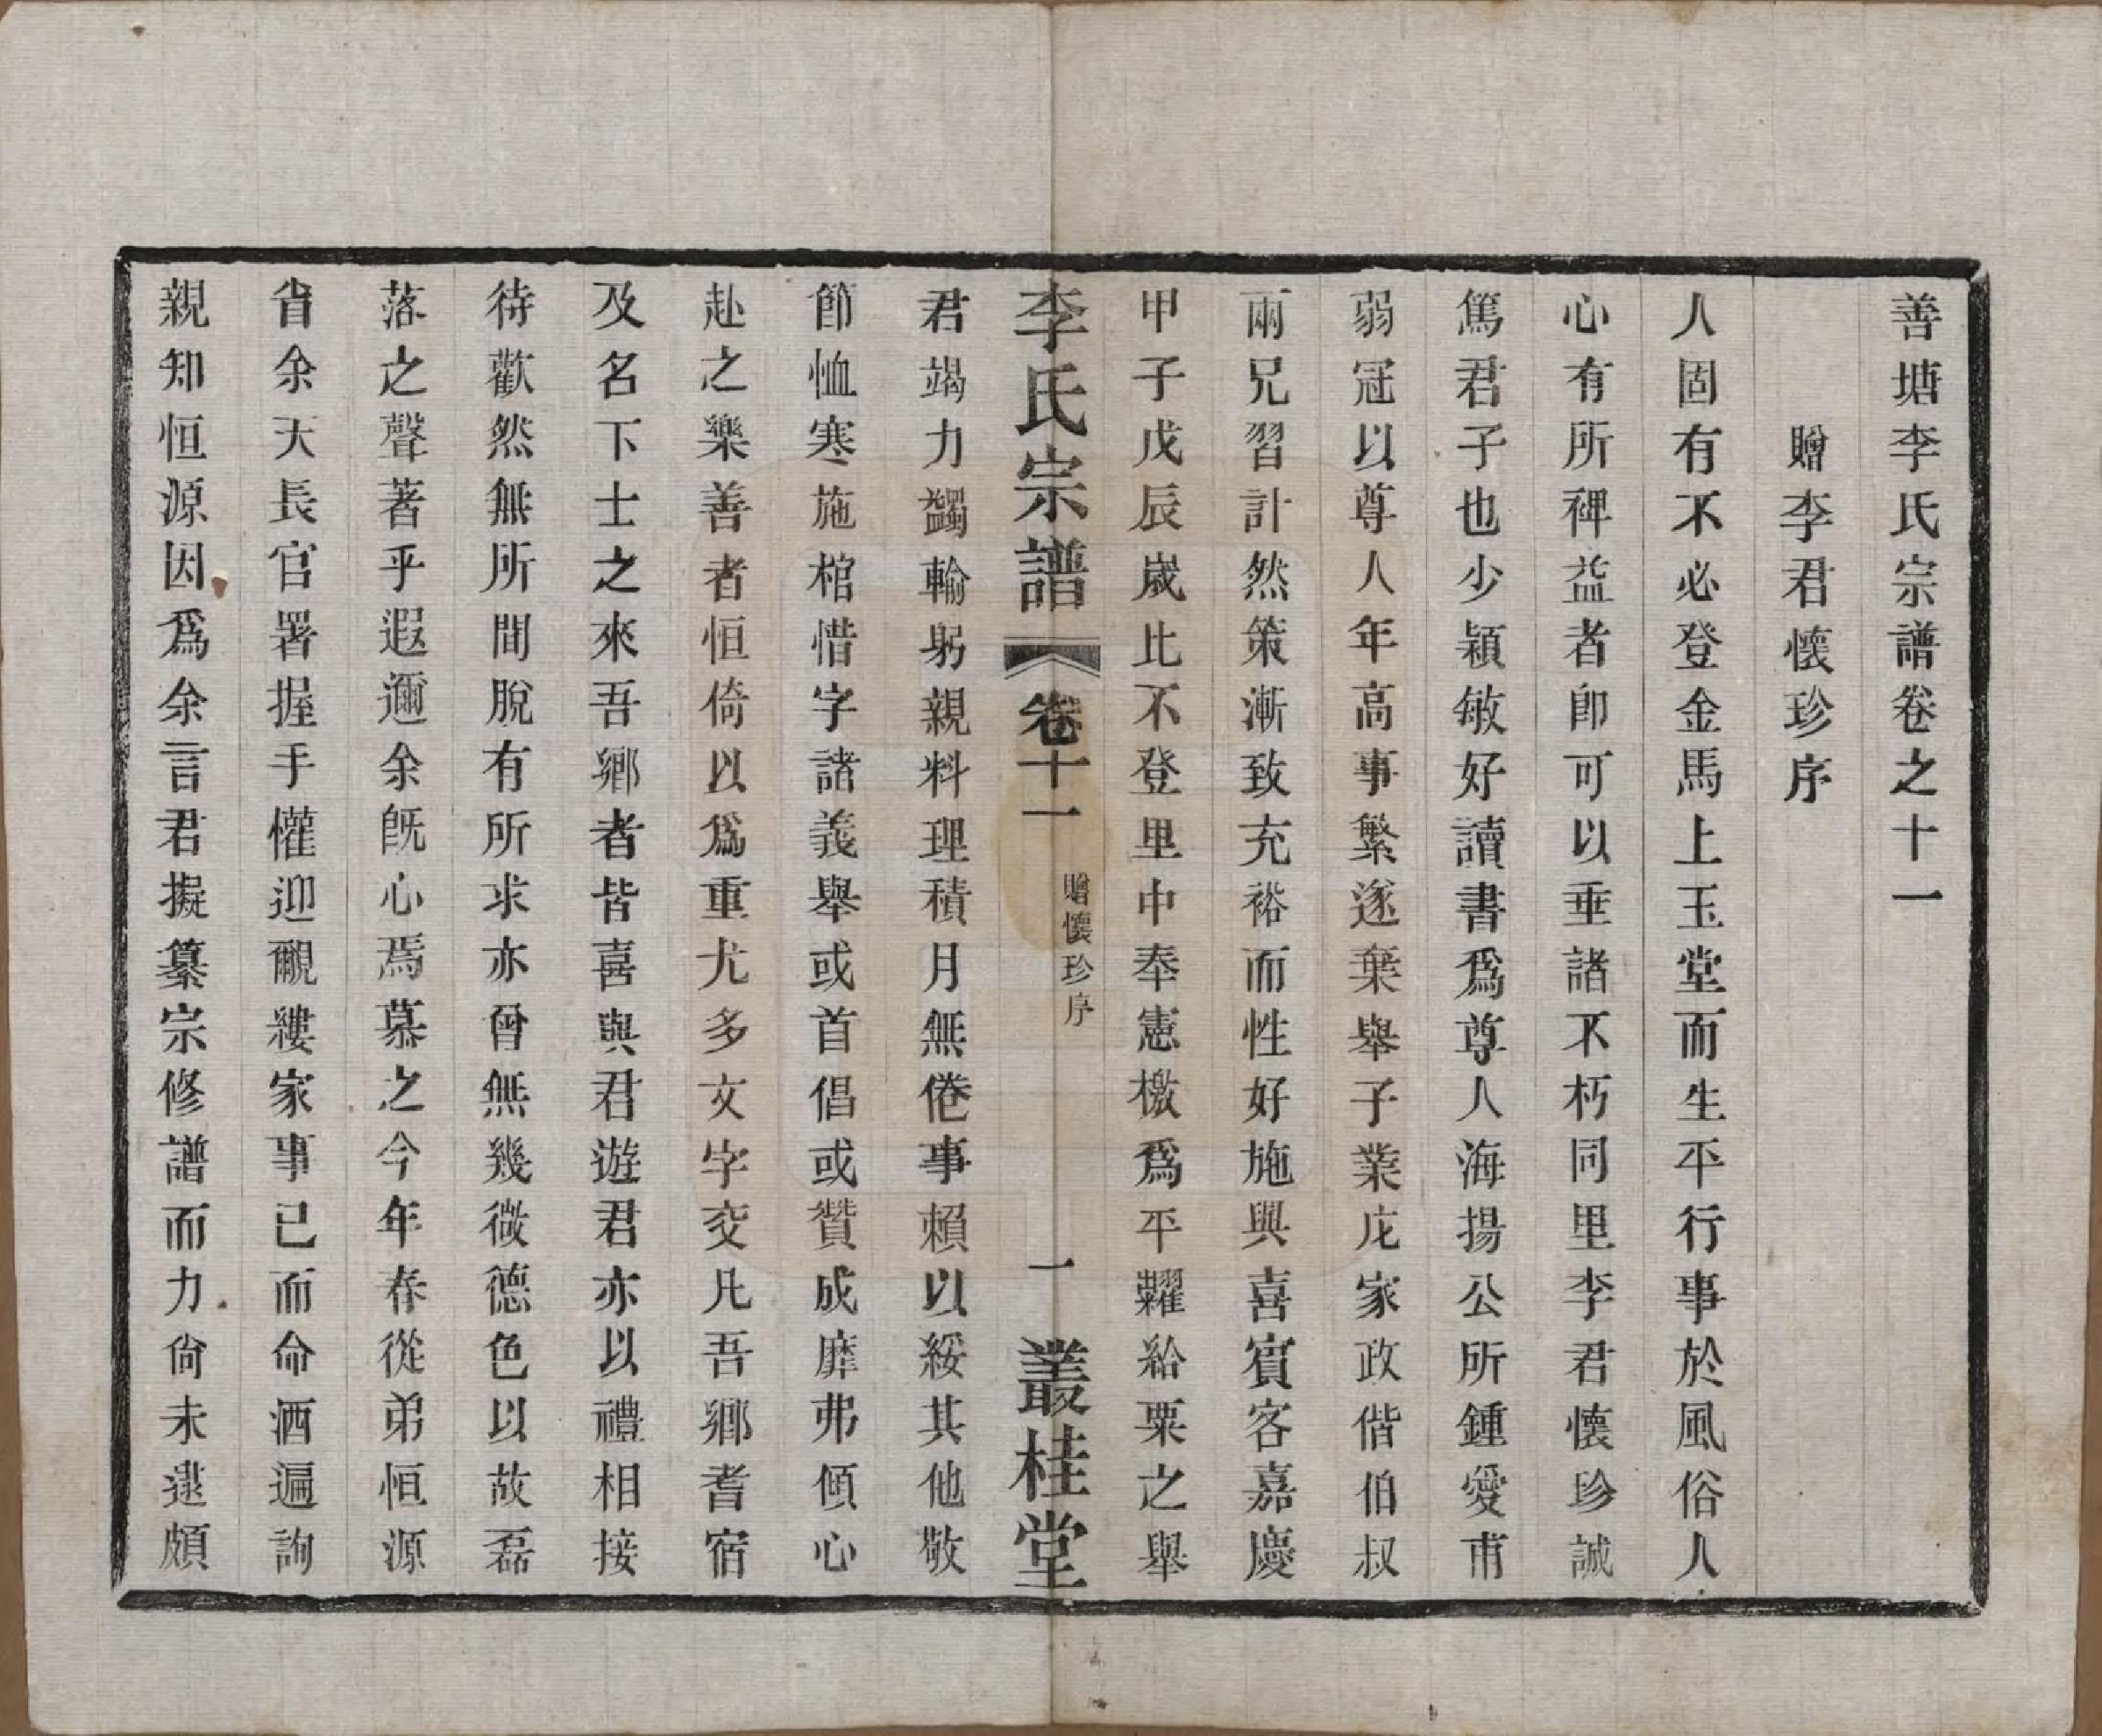 善塘李氏宗譜卷之十一
贈李君懷珍序
人固有不必登金馬上玉堂而生平行事於風俗人
心有所裨益者卽可以垂諸不朽同里李君懷珍誠
篤君子也少穎敏好讀書爲尊人海揚公所鍾愛甫
弱冠以尊人年高事繁遂棄舉子業庀家政偕伯叔
兩兄習計然策漸致充裕而性好施與喜賓客嘉慶
甲子戊辰歲比不登里中奉憲檄爲平糶給粟之舉
李氏宗譜 卷十一 贈懷珍序 一 叢桂堂
君竭力蠲輸躬親料理積月無倦事賴以綏其他敬
節恤寒施棺惜字諸義舉或首倡或贊成靡弗傾心
赴之樂善者恒倚以爲重尤多文字交凡吾鄉耆宿
及名下士之來吾鄉者皆喜與君遊君亦以禮相接
待歡然無所間脫有所求亦曾無幾微德色以故磊
落之聲著乎遐邇余旣心焉慕之今年春從弟恒源
省余天長官署握手懽迎覼縷家事已而命酒遍詢
親知恒源因爲余言君擬纂宗修譜而力尙未逮頗